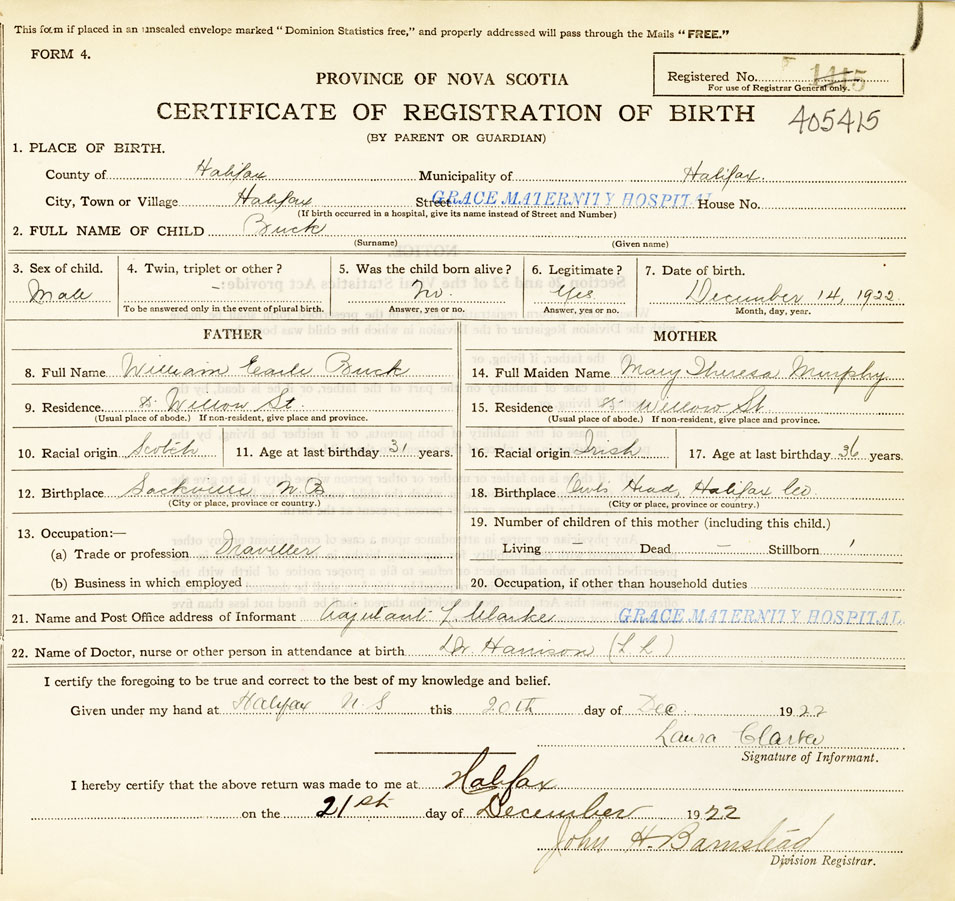 This form if placed in an unsealed envelope marked "Dominion Statistics free," and properly addressed will pass through the Mails "FREE."
FORM 4.
Registered No. 1415
For use of Registrar General only.
PROVINCE OF NOVA SCOTIA
CERTIFICATE OF REGISTRATION OF BIRTH 405415
(BY PARENT OR GUARDIAN)
1. PLACE OF BIRTH.
County of Halifax Municipality of Halifax.
City, Town or Village Halifax Street GRACE MATERNITY HOSPITAL House No.
(If birth occurred in a hospital, give its name instead of Street and Number)
2. FULL NAME OF CHILD Buck
(Surname) (Given name)
3. Sex of child. Male
4. Twin, triplet or other? -
To be answered only in the event of plural birth.
5. Was the child born alive? No.
Answer, yes or no.
6. Legitimate? Yes
Answer, yes or no.
7. Date of birth. December 14, 1922
Month, day, year.
FATHER
8. Full Name William Earle Buck
9. Residence Willow St.
(Usual place of abode.) If non-resident, give place and province.
10. Racial origin Scotch 11. Age at last birthday 31 years.
12. Birthplace Sackville N.B
(City or place, province or country.)
13. Occupation:—
(a) Trade or profession Traveller
(b) Business in which employed
MOTHER
14. Full Maiden Name Mary Theresa Murphy
15. Residence Willow St
(Usual place of abode.) If non-resident, give place and province.
16. Racial origin Irish 17. Age at last birthday 36 years.
18. Birthplace Owls Head, Halifax Co.
(City or place, province or country.)
19. Number of children of this mother (including this child.)
Living - Dead - Stillborn 1
20. Occupation, if other than household duties
21. Name and Post Office address of Informant Adjutant L. Clarke GRACE MATERNITY HOSPITAL
22. Name of Doctor, nurse or other person in attendance at birth Dr Harrison (L L)
I certify the foregoing to be true and correct to the best of my knowledge and belief.
Given under my hand at Halifax N.S this 20th day of Dec 1922
Laura Clarke
Signature of Informant.
I hereby certify that the above return was made to me at Halifax
on the 21st day of December 1922
John H. Barnstead
Division Registrar.